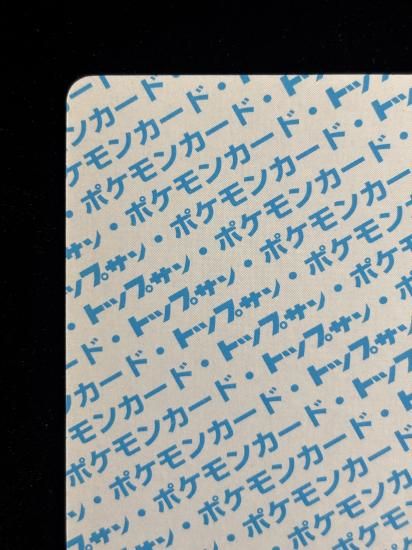 ンカード・
ケモンカード・トッ
・ポケモンカード・トップ
サン・ポケモンカード・
ップサン・ポケモンカード・
・トップサン・ポケモンカー
ド・トップサン・ポケモンカ
カード・トップサン・ポケモン
ンカード・トップサン・ポケ
モンカード・トップサン・ポ
ケモンカード・トップサン
・ポケモンカード・トップ
サン・ポケモンカード・